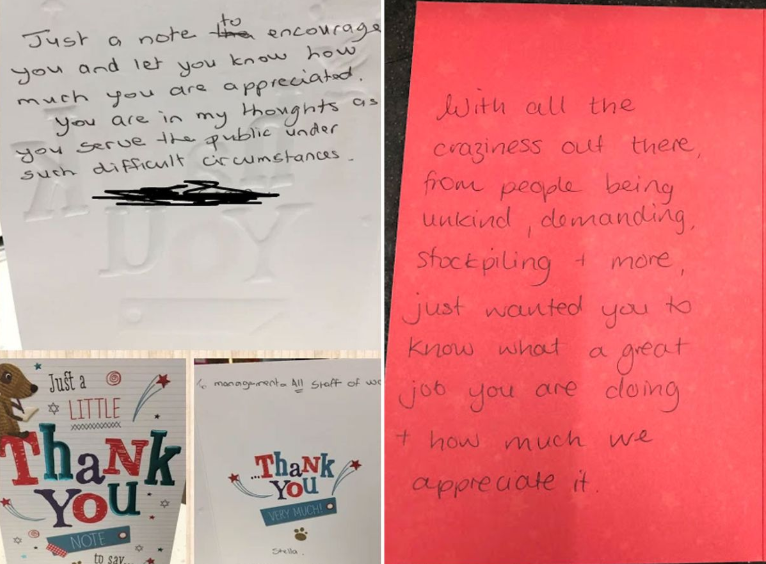 Just a note to encourage
you and let you know how
much you are appreciated.
You are in my thoughts as
you serve the public under
such difficult circumstances.
THANK
YOU
Just a
LITTLE
THANK
YOU
NOTE
to say...
management & All staff of
...THANK
YOU
VERY MUCH!
Stella.
With all the
craziness out there,
from people being
unkind, demanding,
stockpiling + more,
just wanted you to
know what a great
job you are doing
+ how much we
appreciate it.